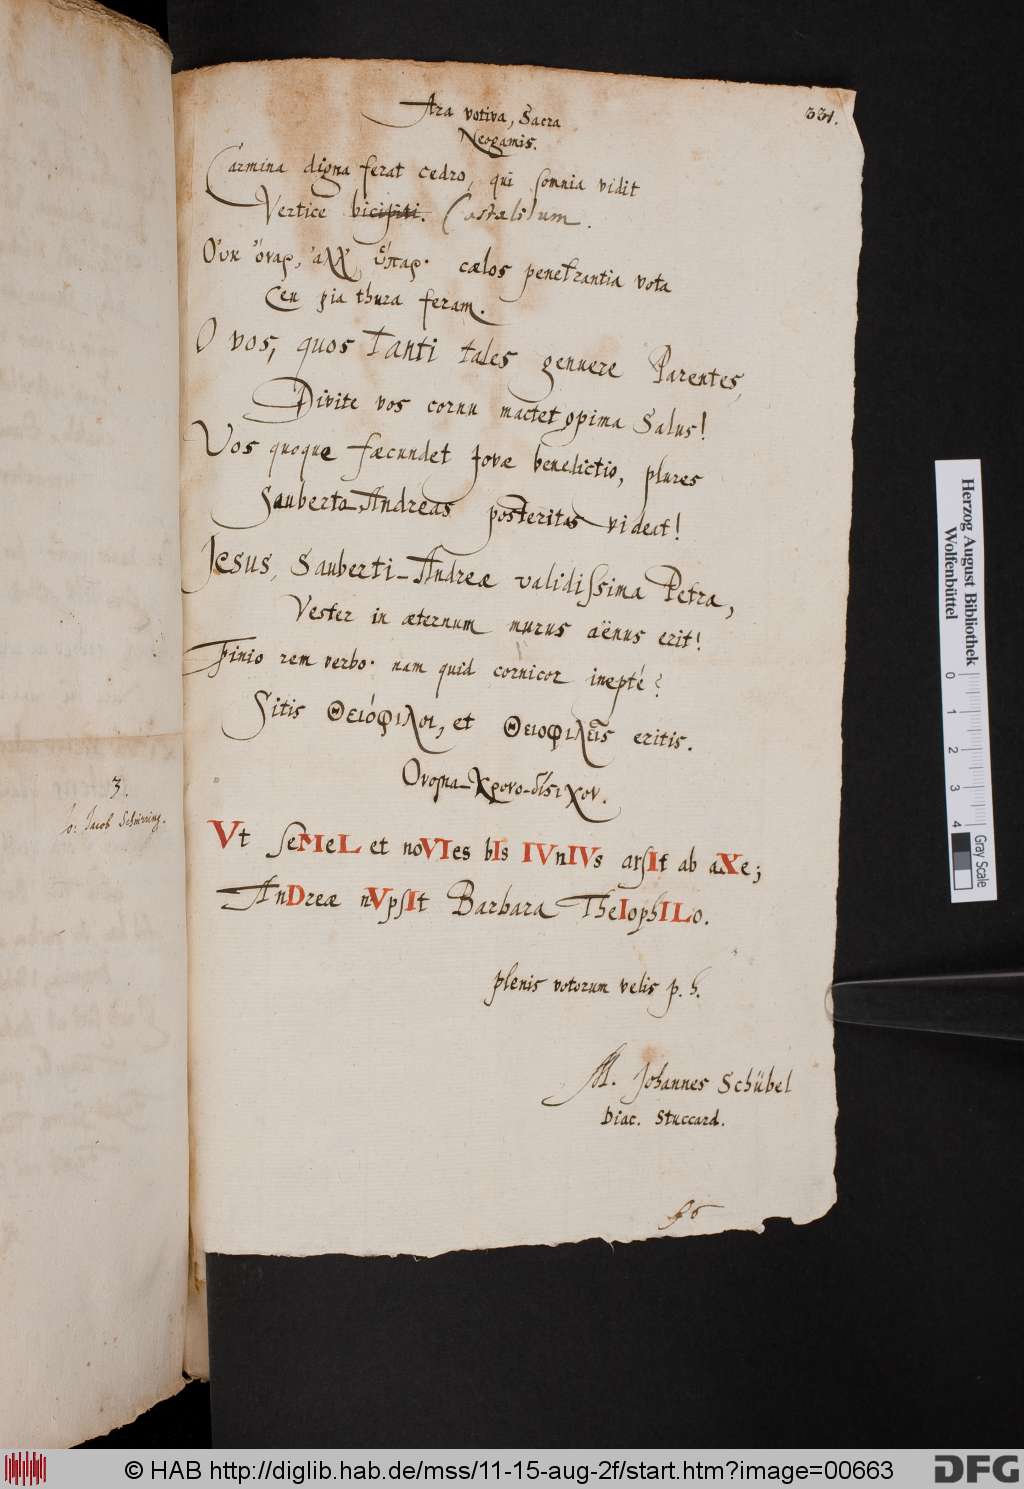 331.
Ara votiva, Sacra
Neogamis.
Carmina digna ferat cedro, qui somnia vidit
Vertice bicipiti. Castalidum.
Οὐκ ὄναρ, ἀλλ' ὕπαρ· cælos penetrantia vota
Ceu pia thura feram.
O vos, quos Tanti tales genuere Parentes,
Divite vos cornu mactet opima Salus!
Vos quoque fæcundet Jovæ benedictio, plures
Sauberto-Andreas posteritas videat!
Jesus, Sauberti-Andreæ validissima Petra,
Vester in æternum murus aënus erit!
Finio rem verbo· nam quid cornicor ineptè?
Sitis Θειόφιλοι, et Θειοφιλεῖς eritis.
Ονομα-Χρονο-δίστιχον.
Vt seMeL et noVIes bIs IVnIVs arsIt ab aXe;
AnDreæ nVpsIt Barbara TheIophILo.
plenis votorum velis p. h.
M. Johannes Schübel
Diac. Stuccard.
3.
Jacob
Herzog August Bibliothek
Wolfenbüttel
0 1 2 3 4
Gray Scale
© HAB http://diglib.hab.de/mss/11-15-aug-2f/start.htm?image=00663
DFG